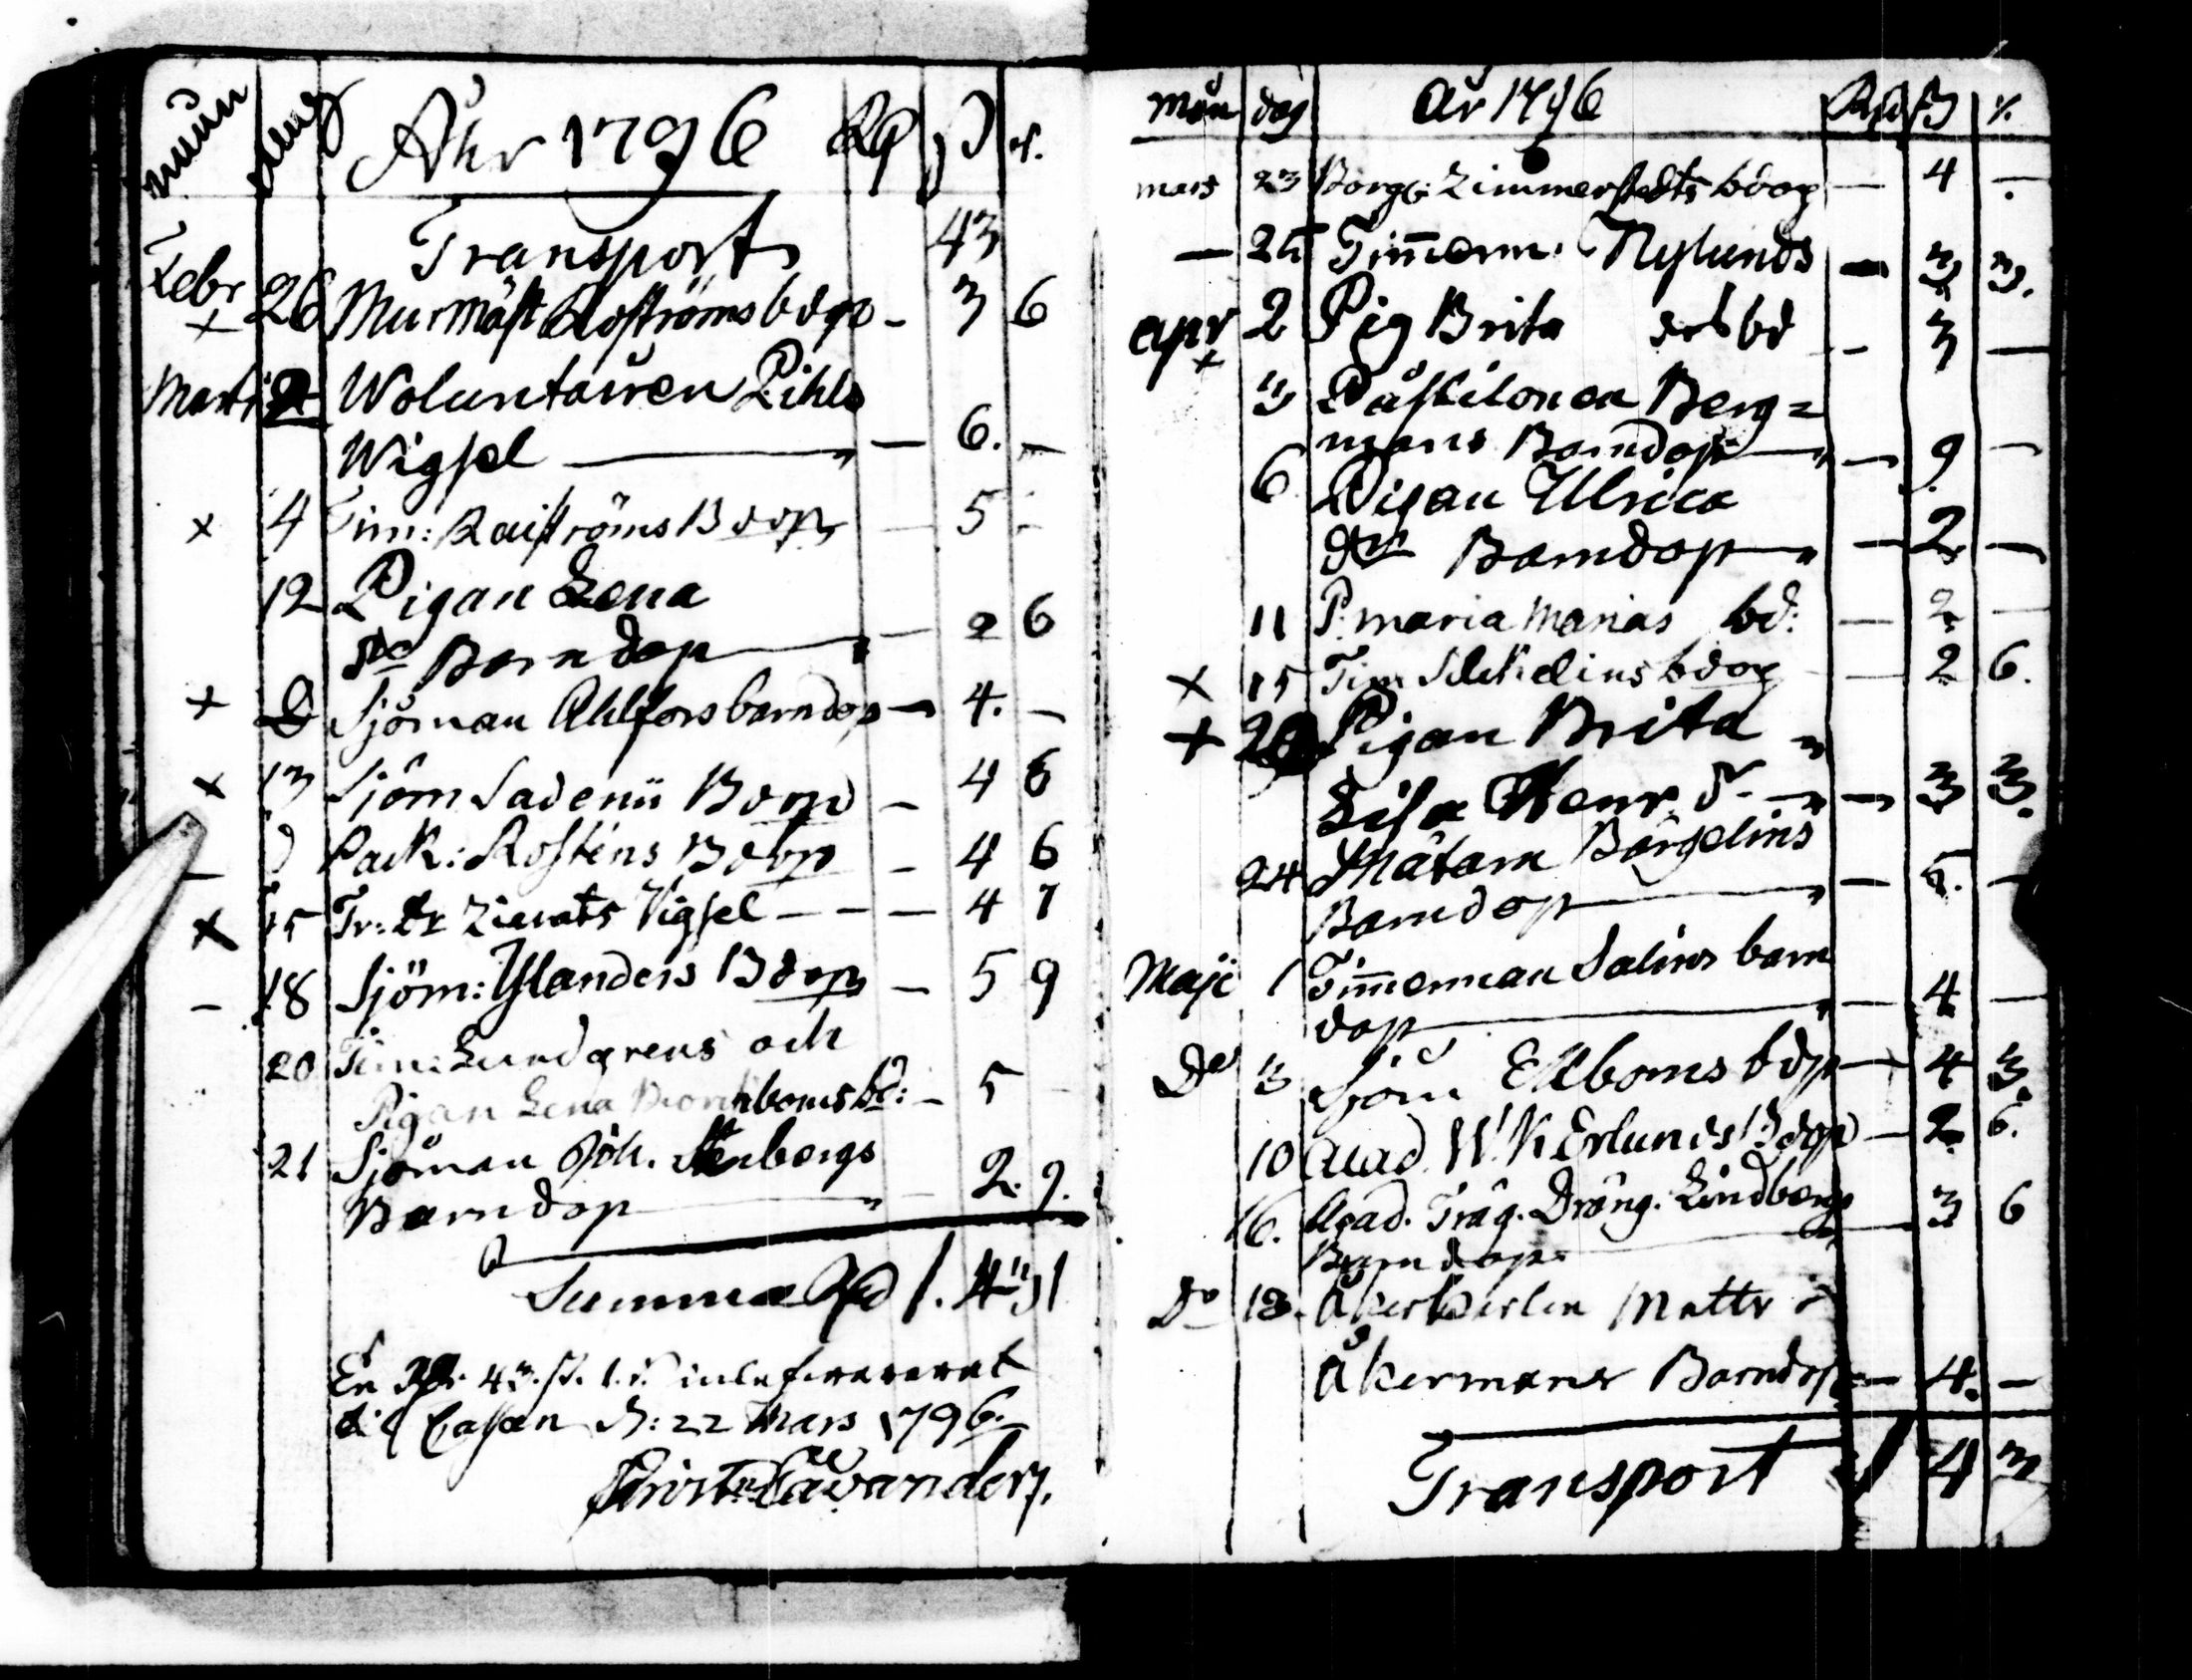 mån dag Åhr 1796 Rd ß r.
Transport 43
Febr 26 Murmäst Roströms bdop – 3 6
Marti 2 Woluntairen Pihls
Wigsel — 6. –
4 Tim: Raiströms Bdop – 5 -
12 Pigan Lena
Barndop — 2 6
D Sjöman Ahlfors barndop – 4. –
13 Sjöm Sadenii Bdop – 4 6
D Pack: Rosténs Bdop – 4 6
15 Tr: Zierats Vigsel – – – 4 7
18 Sjöm: Ylanders Bdop – 5 9
20 Tim: Lundgrens och
Pigan Lena bd: – 5 -
21 Sjöman Joh. Stenbergs
Barndop — 2. 9.
Summa Rd 1. 43 1
En Rd. 43 ß. 1 r.
til Cassan d: 22 Mars 1796.
mån dag År 1796 Rd ß r.
mars 23 Borg: Zimmerstedts bdop — 4 –
— 25 Timerm: Nylunds — 3 3.
apr 2 Pig Brita bd – 3 —
3 Påstilonen Berg=
mans Barndop — 9 –
6 Pigan Ulrica
Barndop — 2 —
11 P. Maria Marias bd: — 2 –
15 Tim bdop — 2 6.
20 Pigan Brita
Lisa Henr. d. — 3 3.
24 Mätare Bärgelins
Barndop — 5. –
Maji 1 Timmerman Salins barn
dop — 4 —
Do 3 Sjöm Ekboms bdp — 4 3.
10 Acad. W. K Erlunds Bdop — 2 6.
16. Acad. Träg. Dräng. Lindbergs
Barndop — 3 6
Do 18. Åkerkarlen Matts
Åkermans Barndop — 4. –
Transport 1 4 3